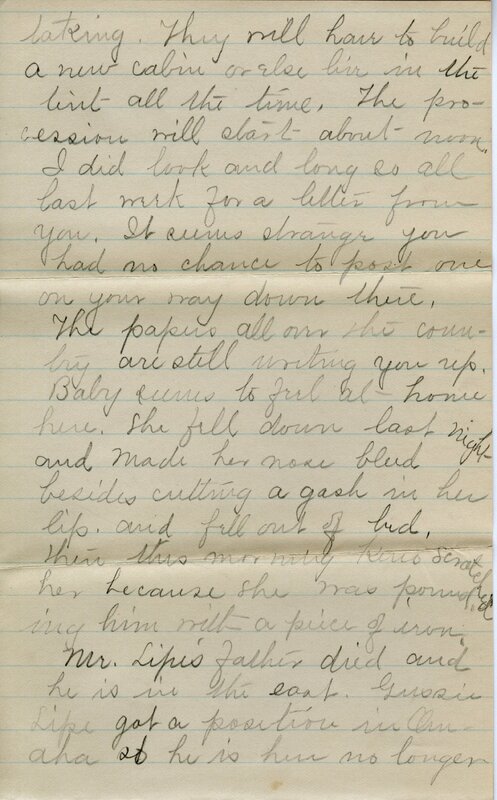 taking. They will have to build
a new cabin or else live in the
tent all the time. The pro-
cession will start about noon.
I did look and long so all
last week for a letter from
you. It seems strange you
had no chance to post one
on your way down there.
The papers all over the coun-
try are still writing you up.
Baby seems to feel at home
here. She fell down last night
and made her nose bleed
besides cutting a gash in her
lip. and fell out of bed.
then this morning Keno scratched
her because she was pound-
ing him with a piece of iron.
Mr. Lipe's father died and
he is in the east. Gussie
Lipe got a position in Om-
aha so he is here no longer